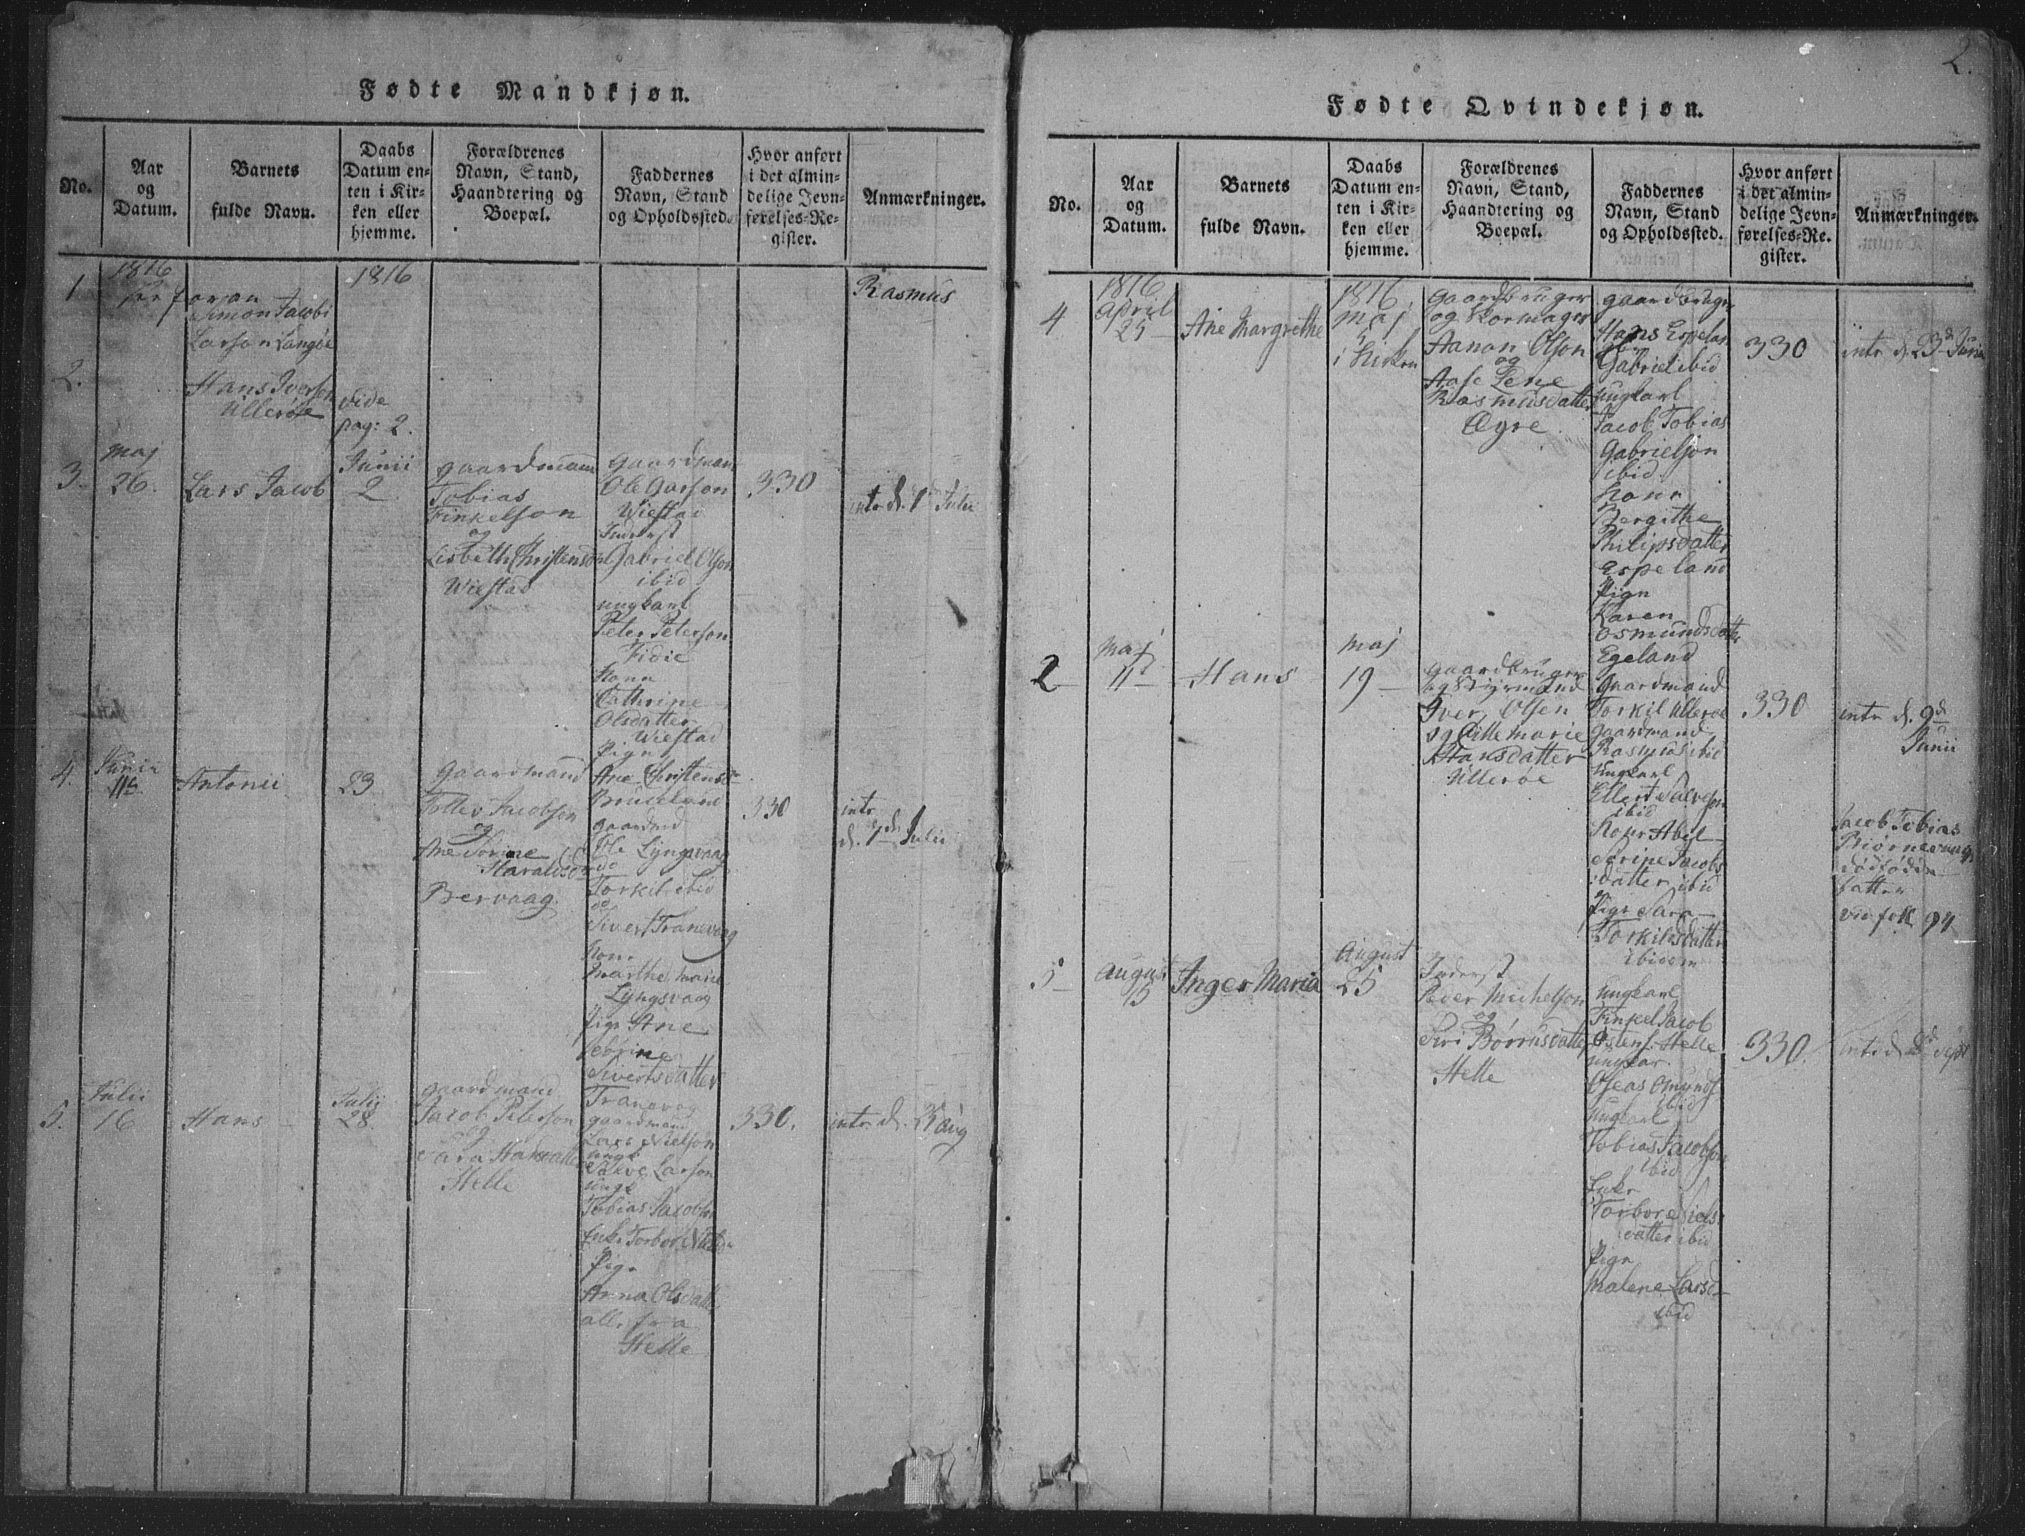 2.
Fødte Mandkjøn.
No.
Aar
og
Datum.
Barnets
fulde Navn.
Daabs
Datum en-
ten i Kir-
ken eller
hjemme.
Forældrenes
Navn, Stand,
Haandtering og
Boepæl.
Faddernes
Navn, Stand
og Opholdssted.
Hvor anført
i det almin-
delige Jevn-
førelses-Re-
gister.
Anmærkninger.
1
1816
foran
Simon Jacobi
Larson Langøe
1816
Rasmus
2.
Hans Iversen
Ullerøe
vide
pag: 2.
3.
Maj
26.
Lars Jacob
Junii
2
gaardmann
Tobias
Finkelson
og
Lisbeth Christensd
Wiestad
Gaardman
Ole Garson
Wiestad
Inderst
Gabriel Olson
ibid
ungkarl
Peter Peterson
Fidie
Kone
Cathrine
Olsdatter
Wiestad
Pign
Ane Christensd
330
intr d. 1 Julii
4.
Junii
11
Antonii
23
Gaardmand
Jacobson
og
Ane Sorine
Haraldsd
Bervaag.
gaardmd
Ole Lyngsvaag
Torkil ibid
Sivert Tranevaag
Kone
Marthe Marie
Lyngsvaag
Pige Ane
Sivertsdatter
Tranevag
330
intr
d. 1 Julii
5.
Julii
16
Hans
Julij
28
gaardmand
Jacob Peterson
og
Sara Hansdatter
Helle
gaardmand
Lars Nielson
ungk
Salve Larson
ungk
Tobias Jacobsn
Enk. Torbor
Pign
Anna Olsdatte
all. fra
Helle
330.
intr. d. aug
Fødte Qvindekjøn.
No.
Aar
og
Datum.
Barnets
fulde Navn.
Daabs
Datum en-
ten i Kir-
ken eller
hjemme.
Forældrenes
Navn, Stand,
Haandtering og
Boepæl.
Faddernes
Navn, Stand
og Opholdssted.
Hvor anført
i det almin-
delige Jevn-
førelses-Re-
gister.
Anmærkninger.
4
1816
April
25
Ane Margrethe
1816
Maj
5
i Kirken
Gaardbruger
og Skomager
Aanon Olson
og
Aase Lene
Rasmusdatter
Øyre
gaardbruger
Hans Espelan
Gabriel ibid
ungkarl
Jacob Tobias
Gabrielson
ibid
Kone
Bergithe
Philipsdatter
Espeland
Pign
Karen
Osmundsdatte
Egeland
330
intr d. 23 Junii
2
Maj
11
Hans
Maj
19
gaardbruger
og Styrmand
Iver Olsen
og Cille marie
Hansdatter
Ullerøe
Gaardmand
Torkil Ullerøe
Gaardmand
Rasmus ibid
Ungkarl
Ellert Salveson
ibid
Kone Abel
Serine Jacobs
datter ibid
Pige Sara
Torkildsdatter
ibidem
330
intr d. 9d
Junii
Jacob Tobias
Biørnevaag
dødfødd
datter
vid fol 94
5
August
15
Inger Maria
August
25
Inderst
Peder Michelson
og
Siri Børrusdatter
Helle
Ungkarl
Finkel Jacob
Østens. Helle
ungkar.
Oseas Omunds
ibid
Ungkarl
Tobias Jacobson
ibid
Enke
Torbor Niels-
datter ibid
Pign
Malene Larsd
ibid
330.
intr d Sept